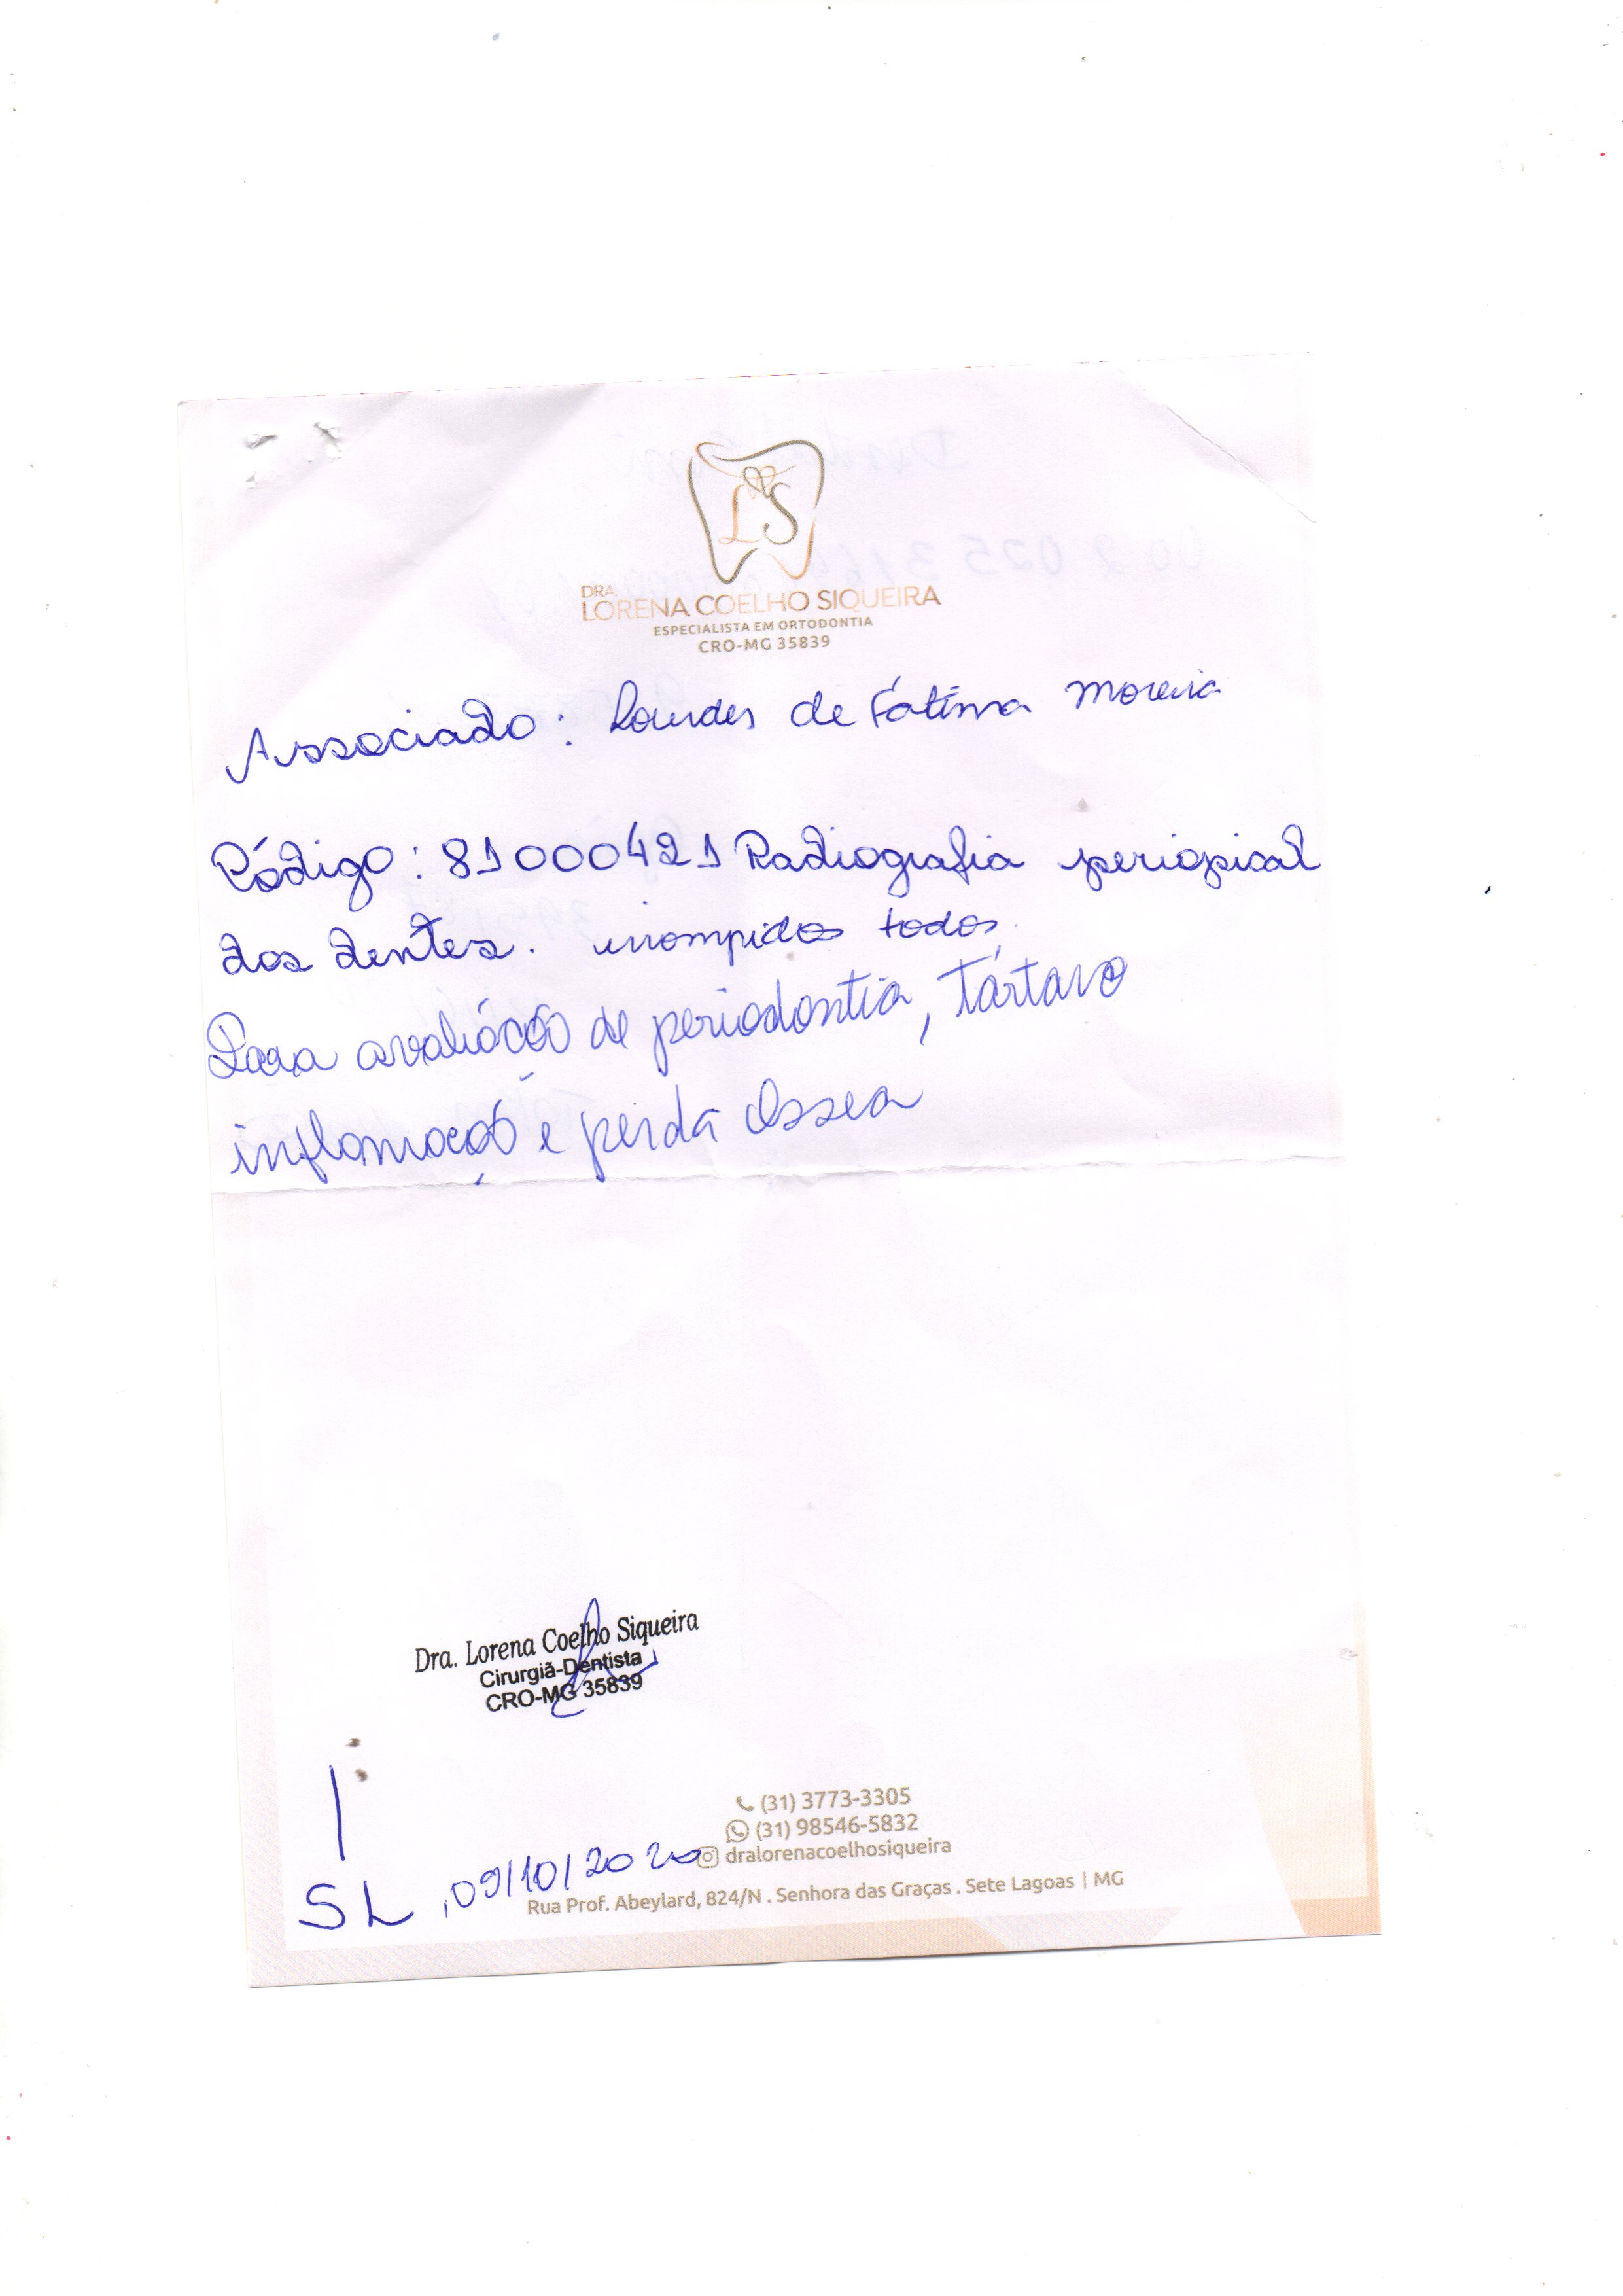 LS
DRA.
LORENA COELHO SIQUEIRA
ESPECIALISTA EM ORTODONTIA
CRO-MG 35839
Associado: Lourdes de Fátima Moreira
Código: 81000421 Radiografia periapical
dos dentes. irrompidos todos.
Para avaliação de periodontia, tártaro
inflamação e perda óssea
Dra. Lorena Coelho Siqueira
Cirurgiã-Dentista
CRO-MG 35839
(31) 3773-3305
(31) 98546-5832
dralorenacoelhosiqueira
SL, 09/10/2020
Rua Prof. Abeylard, 824/N . Senhora das Graças . Sete Lagoas | MG